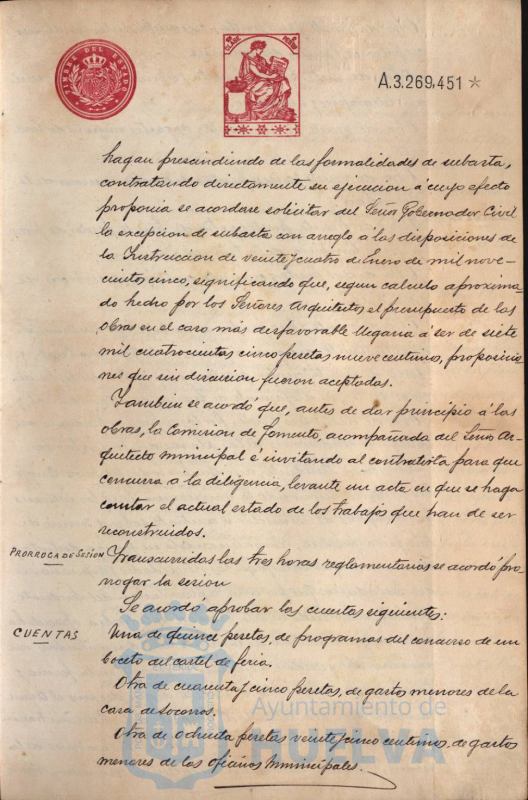 TIMBRE DEL ESTADO
A.3.269,451 *
hagan prescindiendo de las formalidades de subasta,
contratando directamente su ejecucion á cuyo efecto
proponia se acordase solicitar del Señor Gobernador Civil
la excepcion de subasta con arreglo á las disposiciones de
la Instruccion de veinte y cuatro de Enero de mil nove-
cientos cinco, significando que, segun calculo aproxima-
do hecho por los Señores Arquitectos el presupuesto de las
obras en el caso más desfavorable llegaria á ser de siete
mil cuatrocientas cinco pesetas nueve centimos, proposicio-
nes que sin discusion fueron aceptadas.
Tambien se acordó que, antes de dar principio á las
obras, la Comision de Fomento, acompañada del Señor Ar-
quitecto municipal é invitando al contratista para que
concurra á la diligencia, levante un acta en que se haga
constar el actual estado de los trabajos que han de ser
reconstruidos.
PRORROGA DE SESION
Transcurridas las tres horas reglamentarias se acordó pro-
rrogar la sesion
Se acordó aprobar las cuentas siguientes:
CUENTAS
Una de quince pesetas, de programas del concurso de un
boceto del cartel de feria.
Otra de cuarenta y cinco pesetas, de gastos menores de la
casa de Socorros.
Otra de ochenta pesetas veinte y cinco centimos, de gastos
menores de las oficinas municipales.
Ayuntamiento de
HUELVA